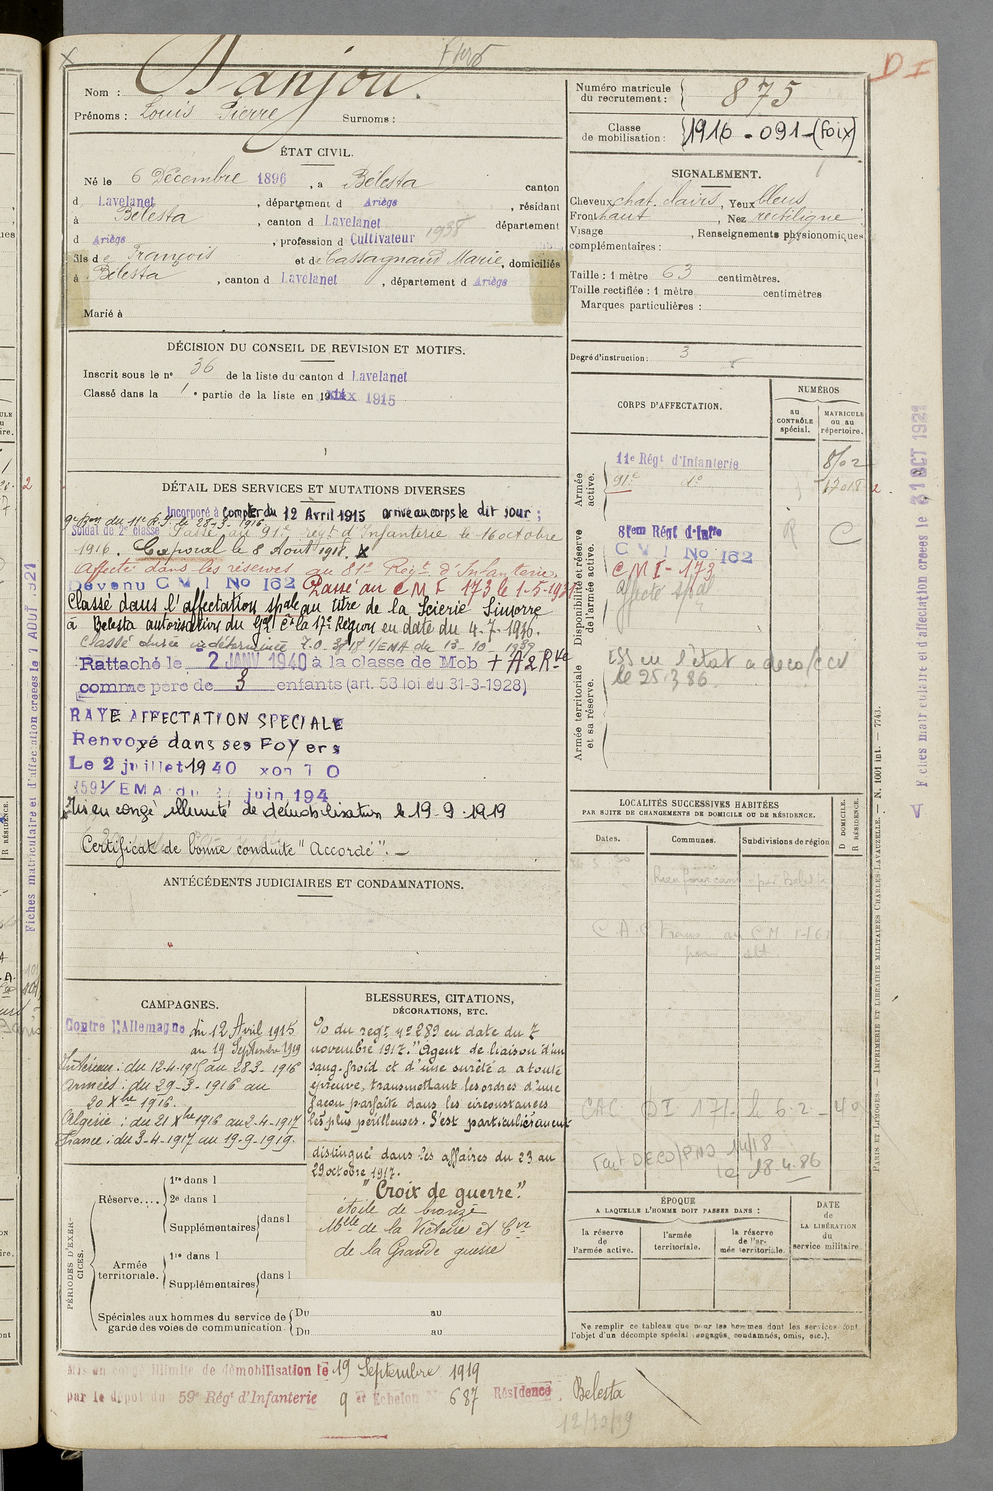 D I
Nom : Danjou.
Prénoms : Louis Pierre Surnoms :
ÉTAT CIVIL.
Né le 6 Décembre 1896, à Bélesta canton
d Lavelanet, département d Ariège, résidant
à Bélesta, canton d Lavelanet département
d Ariège, profession d Cultivateur 1938
fils de François et de Cassagnaud Marie, domiciliés
à Bélesta, canton d Lavelanet, département d Ariège
Marié à
DÉCISION DU CONSEIL DE REVISION ET MOTIFS.
Inscrit sous le n° 36 de la liste du canton d Lavelanet
Classé dans la 1e partie de la liste en 1915
DÉTAIL DES SERVICES ET MUTATIONS DIVERSES
Incorporé à compter du 12 Avril 1915 arrivé au corps le dit jour ;
Soldat de 2e classe Passé au 91e regt d'Infanterie le 16 octobre
1916. Caporal le 8 Aout 1918.
Affecté dans les réserves au 81e Régt d'Infanterie.
Devenu C M I No 162 Passé au C M I 173 le 1-5-193
Classé dans l'affectation spale au titre de la Scierie Simorre
à Belesta autorisation du Gal Ct la 17e Région en date du 4.7.1936.
Classé durée indéterminée
Rattaché le 2 JANV 1940 à la classe de Mob + A 2 Rve
comme père de 3 enfants (art. 58 loi du 31-3-1928)
RAYE AFFECTATION SPECIALE
Renvoyé dans ses Foyers
Le 2 juillet 1940
/EMA du juin 194
Mis en congé illimité de démobilisation le 19-9-1919
Certificat de bonne conduite "Accordé". —
ANTÉCÉDENTS JUDICIAIRES ET CONDAMNATIONS.
CAMPAGNES.
Contre l'Allemagne du 12 Avril 1915
au 19 Septembre 1919
Intérieur : du 12-4-1915 au 28-3-1916
Armées : du 29-3-1916 au
20 Xbre 1916.
Algérie : du 21 Xbre 1916 au 2-4-1917
France : du 3-4-1917 au 19-9-1919.
BLESSURES, CITATIONS,
DÉCORATIONS, ETC.
O du regt n° 289 en date du 7
novembre 1917. "Agent de liaison d'un
sang-froid et d'une sureté à toute
épreuve, transmettant les ordres d'une
façon parfaite dans les circonstances
les plus périlleuses. S'est particulièrement
distingué dans les affaires du 23 au
29 octobre 1917.
"Croix de guerre".
étoile de bronze
Mlle de la Victoire et Cve
de la Grande guerre
PÉRIODES D'EXERCICES.
Réserve....
1re dans l
2e dans l
Supplémentaires dans l
Armée territoriale.
1re dans l
Supplémentaires dans l
Spéciales aux hommes du service de garde des voies de communication.
Du au
Du au
Mis en congé illimité de démobilisation le 19 Septembre 1919
par le dépôt du 59e Régt d'Infanterie 9 et Echelon N° 687 Résidence Belesta
12/10/19
Numéro matricule du recrutement : 875
Classe de mobilisation : 1916 - 091 - (Foix)
SIGNALEMENT.
Cheveux chat. clairs, Yeux bleus
Front haut, Nez rectiligne
Visage , Renseignements physionomiques
complémentaires :
Taille : 1 mètre 63 centimètres.
Taille rectifiée : 1 mètre centimètres
Marques particulières :
Degré d'instruction : 3
CORPS D'AFFECTATION.
NUMÉROS
au CONTRÔLE spécial.
MATRICULE ou au répertoire.
Armée active.
11e Régt d'Infanterie 8702
91e do
Disponibilité et réserve de l'armée active.
81em Régt d'Infie
C M I No 162
C M I - 173
affecté spal
Armée territoriale et sa réserve.
le 25.3.86
LOCALITÉS SUCCESSIVES HABITÉES
PAR SUITE DE CHANGEMENTS DE DOMICILE OU DE RÉSIDENCE.
Dates. Communes. Subdivisions de région D DOMICILE. R RÉSIDENCE.
CAC DI 171. le 6.2-40
Fait DECO/PND 14/18
le 18.4.86
ÉPOQUE
A LAQUELLE L'HOMME DOIT PASSER DANS :
la réserve de l'armée active.
l'armée territoriale.
la réserve de l'armée territoriale.
DATE de LA LIBÉRATION du service militaire.
Ne remplir ce tableau que pour les hommes dont les services font
l'objet d'un décompte spécial (engagés, condamnés, omis, etc.).
PARIS ET LIMOGES. — IMPRIMERIE ET LIBRAIRIE MILITAIRES CHARLES-LAVAUZELLE. — N. 1001 int. — 7743.
Fiches matriculaire et d'affectation creees le 31 OCT 1921
Fiches matriculaire et d'affectation creees le 1 AOUT 1921